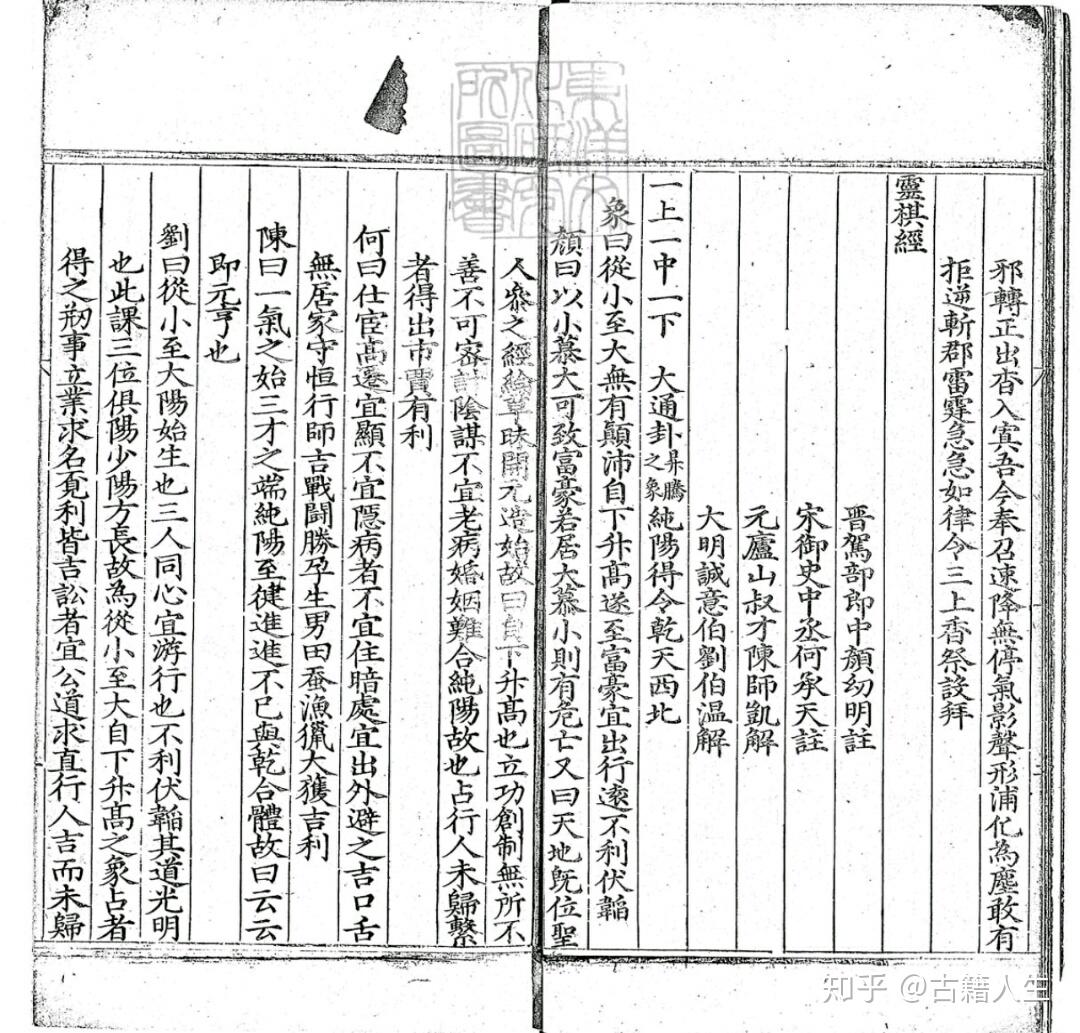 邪轉正出杳入㝠吾今奉召速降無停氣影聲形浦化為塵敢有
拒逆斬郡雷霆急急如律令三上香祭設拜
靈棋經
晋駕部郎中顏幼明註
宋御史中丞何承天註
元廬山叔才陳師凱解
大明誠意伯劉伯温解
一上一中一下 大通卦昇騰之象純陽得令乾天西北
象曰從小至大無有顛沛自下升高遂至富豪宜出行逺不利伏韜
顏曰以小慕大可致富豪若居大慕小則有危亡又曰天地旣位聖
人參之經綸草昧開元造始故曰自下升高也立功創制無所不
善不可審計陰謀不宜老病婚姻難合純陽故也占行人未歸繫
者得出市賈有利
何曰仕宦高遷宜顯不宜隠病者不宜住暗處宜出外避之吉口舌
無居家守恒行師吉戰鬪勝孕生男田蚕漁獵大獲吉利
陳曰一氣之始三才之端純陽至健進進不已與乾合體故曰云云
即元亨也
劉曰從小至大陽始生也三人同心宜游行也不利伏韜其道光明
也此課三位俱陽少陽方長故為從小至大自下升高之象占者
得之剏事立業求名覓利皆吉訟者宜公道求直行人吉而未歸
知乎 @古籍人生